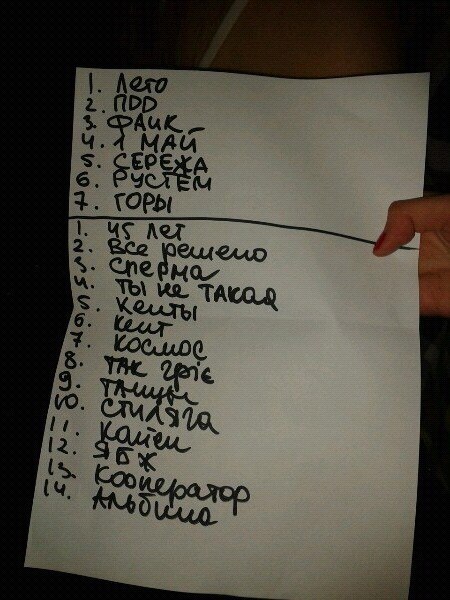 1. Лето
2. ПДД
3. ФАИК
4. 1 МАЙ
5. СЕРЕЖА
6. РУСТЕМ
7. ГОРЫ
1. 45 лет
2. Все решено
3. Сперма
4. ТЫ не ТАКАЯ
5. Кенты
6. Кент
7. КОСМОС
8. ТАК гріє
9. ТАНЦЫ
10. СТИЛЯГА
11.
12. ЯБЖ
13. Кооператор
14. Альбина